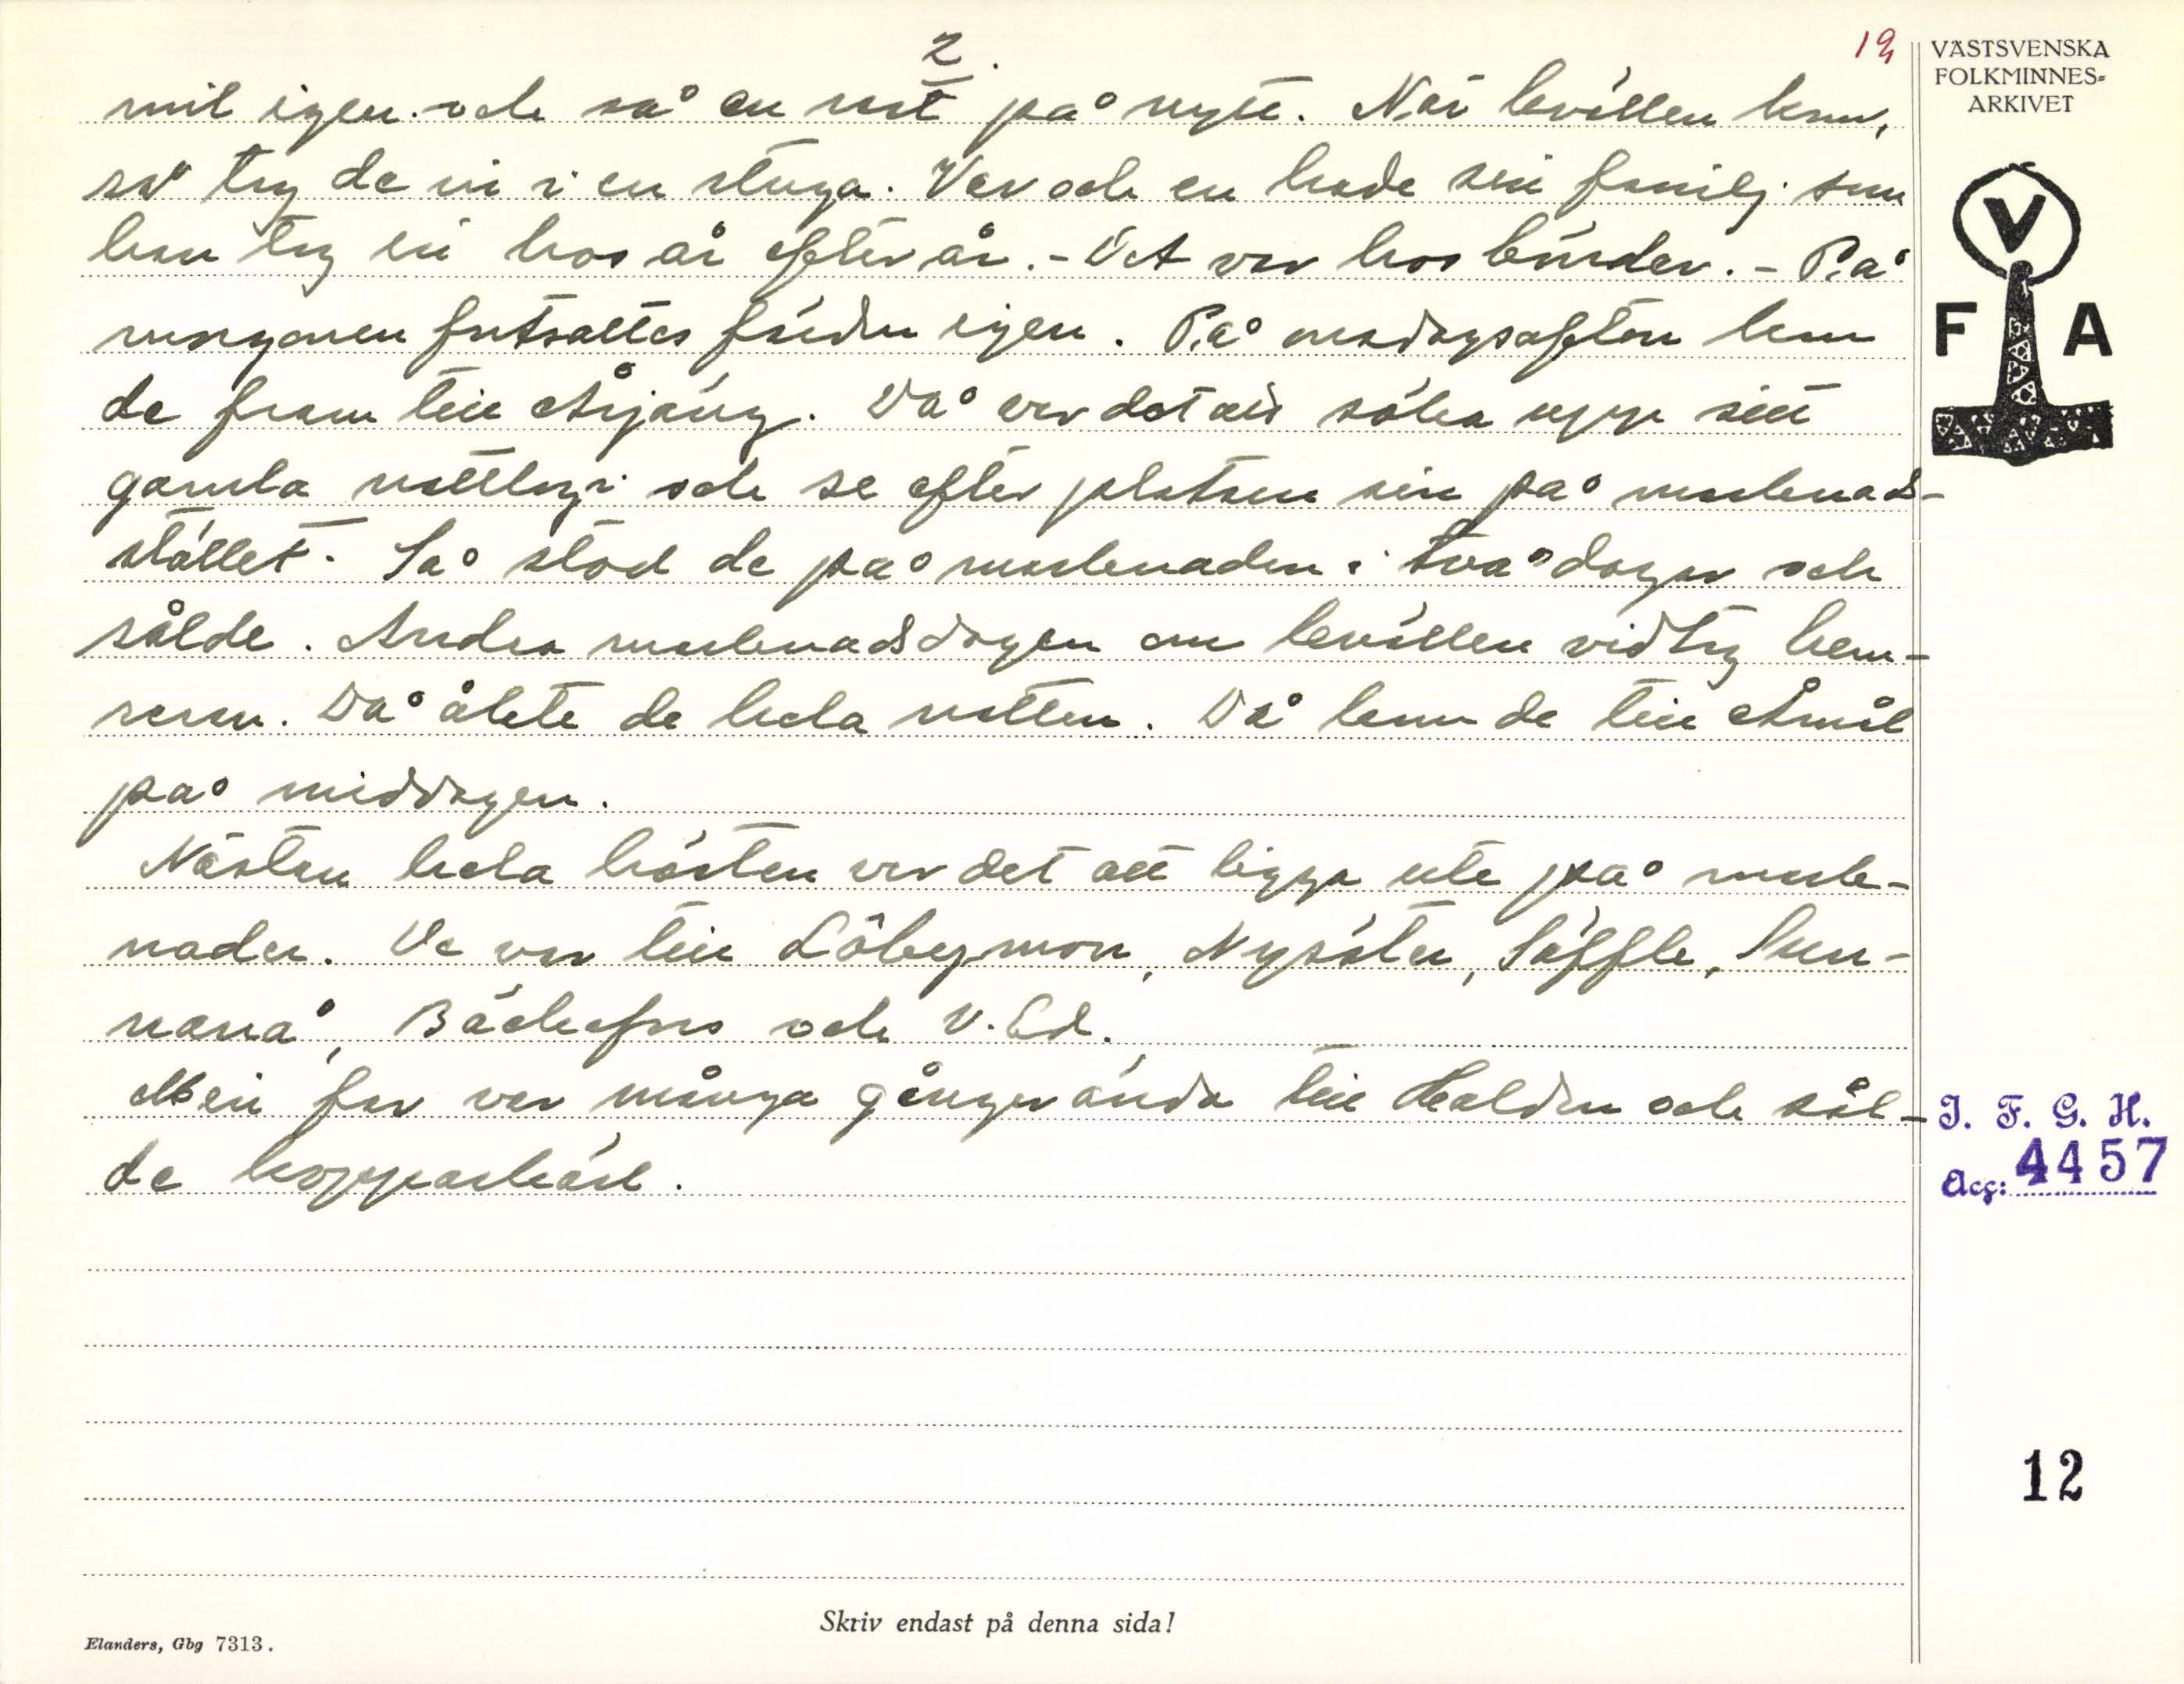 2.
12
mil igen och så en rast på nytt. När kvällen kom,
så tog de in i en stuga. Var och en hade sin familj som
han tog in hos år efter år. - Det var hos bönder. - På
morgonen fortsattes färden igen. På onsdagsafton kom
de fram till Årjäng. Då var det att söka upp sitt
gamla nattlogi och se efter platsen sin på marknads-
stället. Så stod de på marknaden i två dagar och
sålde. Andra marknadsdagen om kvällen vidtog hem-
resan. Då åkte de hela natten. Då kom de till Åmål
på middagen.
Nästan hela hösten var det att ligga ute på mark-
nader. De var till Låbymon, Nysäter, Säffle, Sun-
nanå, Bäckefors och V. Ed.
Min far var många gånger ända till Halden och sål-
de kopparkärl.
VÄSTSVENSKA
FOLKMINNES-
ARKIVET
V
F A
I. F. G. H.
Acc: 4457
12
Skriv endast på denna sida!
Elanders, Gbg 7313.